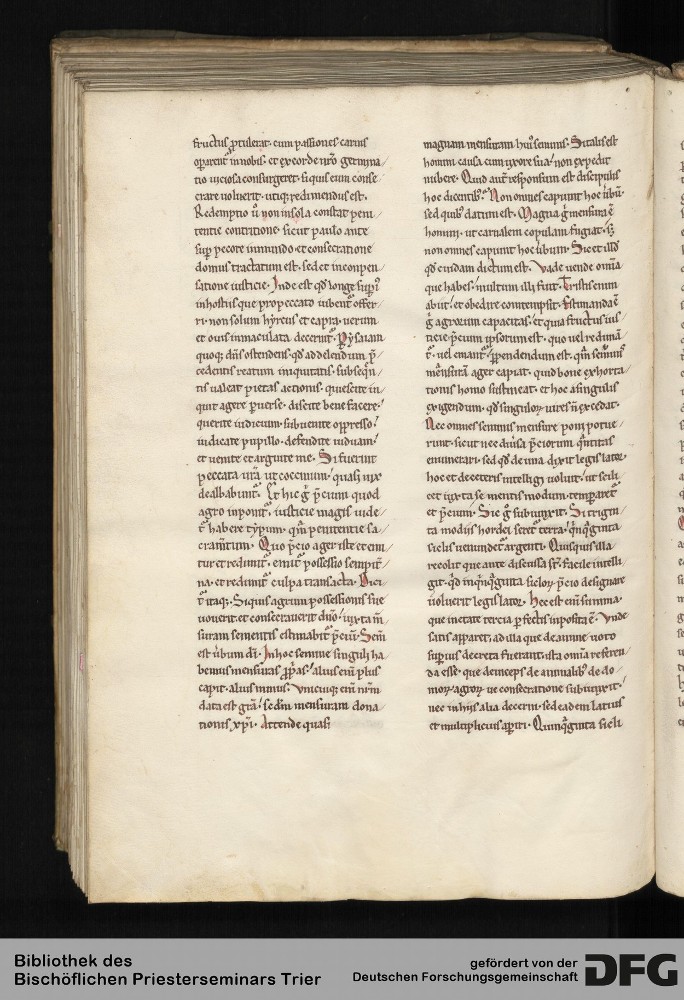 fructus ꝓtulerat· cum passiones carnis
oparent̃ in nobis· et ex corde nr̃o germina
tio uiciosa consurgeret· si quis eum conse
crare uoluerit· utiq; redimendus est·
Redemptio ū non in sola constat peni
tentie contritione· sicut paulo ante
sup pecore inmundo et consecratione
domus tractatum est· sed et in conpen
satione iusticie· Inde est qd̃ longe supi᷑
in hostiis que pro peccato iubent᷑ offer
ri· non solum hyrcus et capra· uerum
et ouis inmaculata decernit᷑· P ysaiam
quoq; dn̄s ostendens· qd̃ ad delendum p̄
cedentis reatum iniquitatis· subseqn̄
tis ualeat pietas actionis· quiescite in
quit agere ꝑuerse· discite bene facere·
querite iudicium· subuenite oppresso·
iudicate pupillo· defendite uiduam·
et uenite et arguite me· Si fuerint
peccata ur̄a ut coccinum· quasi nix
dealbabunt᷑· Et hic g̊ p̄cium quod
agro inponit᷑· iusticie magis uide
t᷑ habere typum· qm̄ penitentie sa
cram̄tum· Quo p̄cio ager iste et emi
tur et redimit᷑· emit᷑ possessio sempit̃
na· et redimit᷑ culpa transacta· Dici
t᷑ itaq;· Si quis agrum possessionis sue
uouerit· et consecrauerit dn̄o· iuxta m̄
suram sementis estimabit᷑ p̄ciū· Sem̄
est ūbum dī· In hoc semine singuli ha
bemus mensuras ꝓp̄as· alius enī plus
capit· alius minus· Vnicuiq; enī nr̄m
data est grā· sc̄dm mensuram dona
tionis xp̄i· Attende quasi
magnam mensuram hui᷒ seminis· Si talis est
homini causa cum uxore sua· non expedit
nubere· Quid aut̃ responsum est discipulis
hoc dicentib᷒· Non omnes capiunt hoc ūbū·
sed quib᷒ datum est· Magna g̊ mensura ē
homini· ut carnalem copulam fugiat· sꝫ
non omnes capiunt hoc ūbum· Sic et illd̃
qd̃ cuidam dictum est· Vade uende om̄ia
que habes· multum illi fuit· Tristis enim
abiit· et obedire contempsit· Estimanda ē
g̊ agrorum capacitas· et quia fructus ius
ticie p̄cium ipsorum est· quo uel redimā
t᷑· uel emant᷑· ꝑpendendum est· qm̄ seminis
m̄nsuram ager capiat· quid bone exhorta
tionis homo sustineat· et hoc a singulis
exigendum· qd̃ singuloꝝ uires n̄ excedat·
Nec omnes seminis mensure poni potue
runt· sicut nec diuīsa p̄ciorum qn̄titas
enumerari· sed qd̃ de una dixit legislator·
hoc et de ceteris intelligi uoluit· ut scili
cet iuxta sementis modum temparet᷑
et p̄cium· Sic g̊ subiunxit· Si trigin
ta modiis hordei seret᷑ terra· q̄nq̄ginta
siclis uenundet᷑ argenti· Quisquis illa
recolit que ante discussa st̄· facile intelli
git· qd̃ in q̄nq̄ginta sicloꝝ p̄cio designare
uoluerit legislator· Hec est enī summa·
que in etate tercia ꝑfectis inposita ē· Vnde
satis apparet· ad illa que de anime uoto
supius decreta fuerant· ista om̄ia referen
da esse· que deinceps de animalib᷒ de do
moꝝ agroꝝ ue consecratione subiunxit·
nec in hiis alia decerni· sed eadem latius
et multiplicius aꝑiri· Quinq̄ginta sicli
Bibliothek des
Bischöflichen Priesterseminars Trier
gefördert von der
Deutschen Forschungsgemeinschaft
DFG